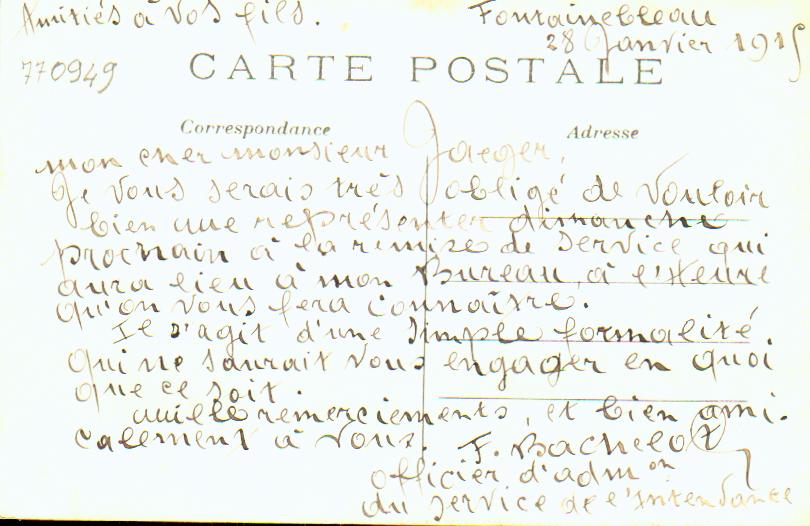 Amitiés à vos fils.
Fontainebleau
28 Janvier 1915
770949
CARTE POSTALE
Correspondance
Adresse
mon cher monsieur Jaeger,
Je vous serais très obligé de vouloir
bien me représenter dimanche
prochain à la remise de service qui
aura lieu à mon Bureau, à l'Heure
qu'on vous fera connaître.
Il s'agit d'une simple formalité.
qui ne saurait vous engager en quoi
que ce soit.
mille remerciements, et bien ami-
calement à vous.
F. Bachelot
officier d'admon
du service de l'Intendance